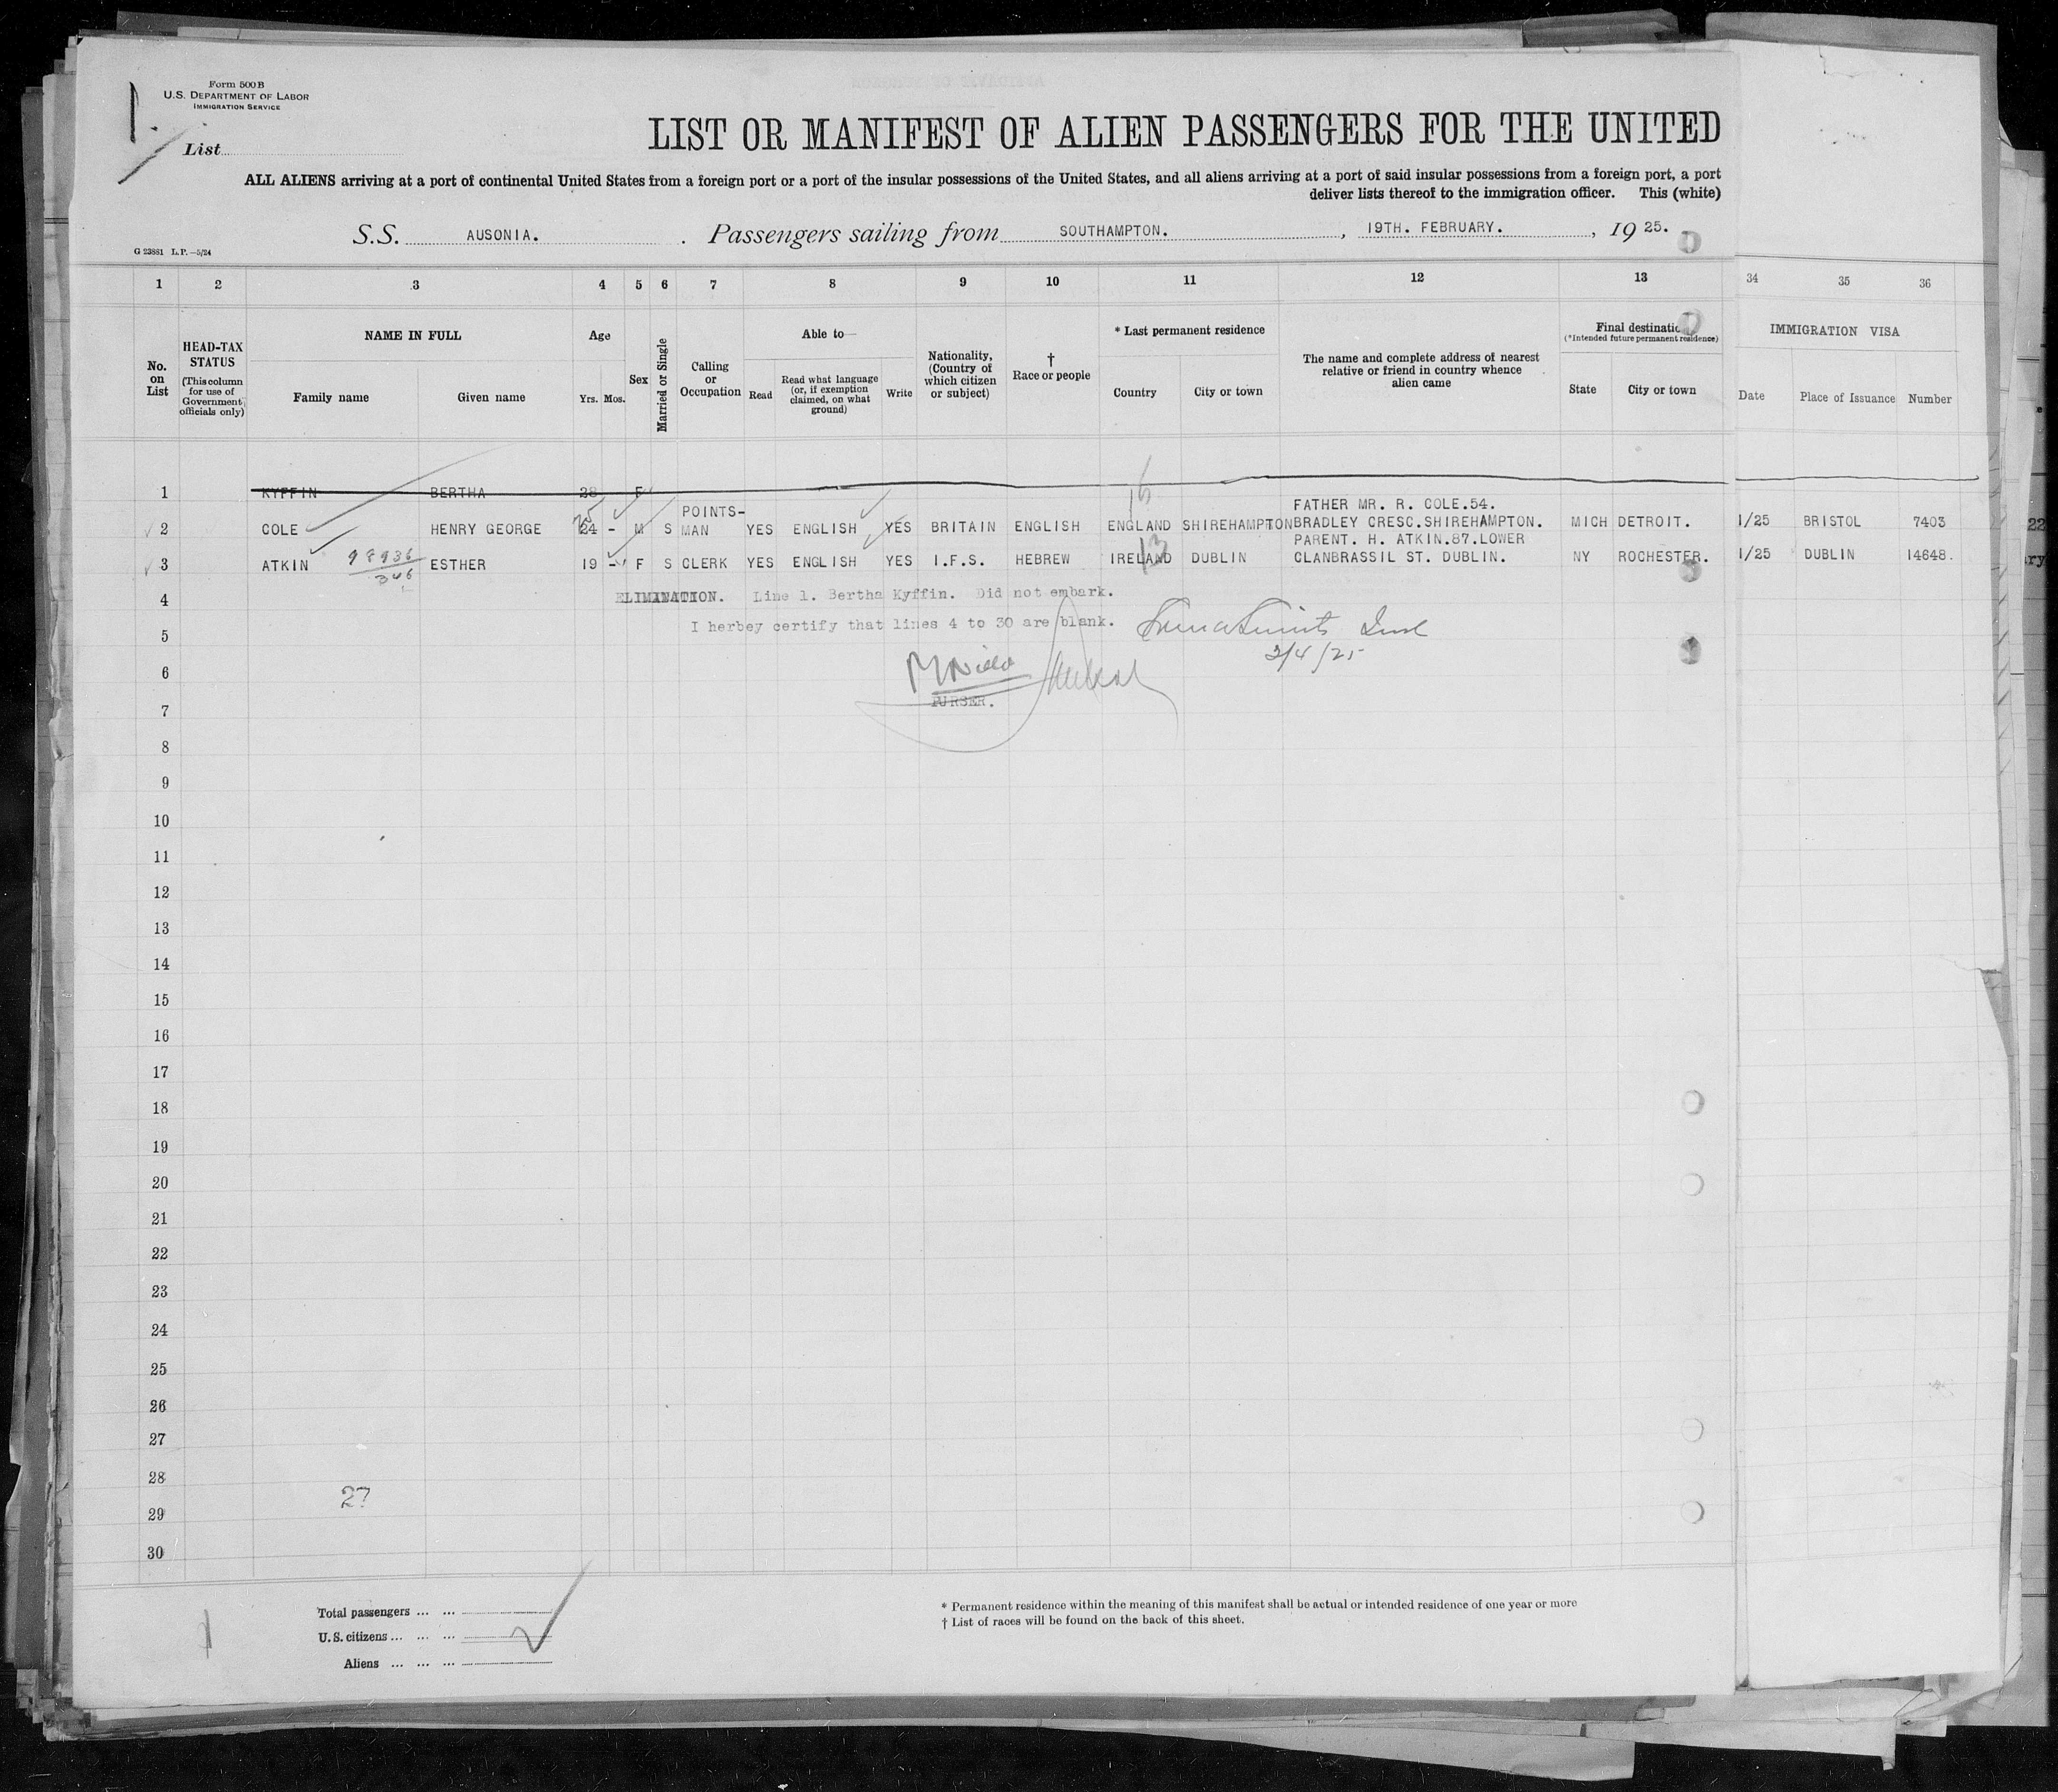 Form 500B
U.S. DEPARTMENT OF LABOR
IMMIGRATION SERVICE
1.
List
LIST OR MANIFEST OF ALIEN PASSENGERS FOR THE UNITED
ALL ALIENS arriving at a port of continental United States from a foreign port or a port of the insular possessions of the United States, and all aliens arriving at a port of said insular possessions from a foreign port, a port
deliver lists thereof to the immigration officer. This (white)
S.S. AUSONIA. Passengers sailing from SOUTHAMPTON. , 19TH. FEBRUARY. , 19 25.
G 23881 L.P.—5/24
1 2 3 4 5 6 7 8 9 10 11 12 13 34 35 36
No. on List
HEAD-TAX STATUS (This column for use of Government officials only)
NAME IN FULL
Family name Given name
Age
Yrs. Mos.
Sex
Married or Single
Calling or Occupation
Able to—
Read
Read what language (or, if exemption claimed, on what ground)
Write
Nationality, (Country of which citizen or subject)
† Race or people
* Last permanent residence
Country City or town
The name and complete address of nearest relative or friend in country whence alien came
Final destination
(*Intended future permanent residence)
State City or town
IMMIGRATION VISA
Date Place of Issuance Number
1 KYFFIN BERTHA 28 F
16
POINTS- FATHER MR. R. COLE.54.
25
2 COLE HENRY GEORGE 24 - M S MAN YES ENGLISH YES BRITAIN ENGLISH ENGLAND SHIREHAMPTON BRADLEY CRESC.SHIREHAMPTON. MICH DETROIT. 1/25 BRISTOL 7403
PARENT. H. ATKIN.87.LOWER
98936
13
3 ATKIN ESTHER 19 - F S CLERK YES ENGLISH YES I.F.S. HEBREW IRELAND DUBLIN CLANBRASSIL ST. DUBLIN. NY ROCHESTER. 1/25 DUBLIN 14648.
346
4 ELIMINATION. Line 1. Bertha Kyffin. Did not embark.
5 I herbey certify that lines 4 to 30 are blank.
2/4/25
6
PURSER.
7
8
9
10
11
12
13
14
15
16
17
18
19
20
21
22
23
24
25
26
27
28
27
29
30
Total passengers ... ...
U.S. citizens ... ... ...
Aliens ... ... ...
* Permanent residence within the meaning of this manifest shall be actual or intended residence of one year or more
† List of races will be found on the back of this sheet.